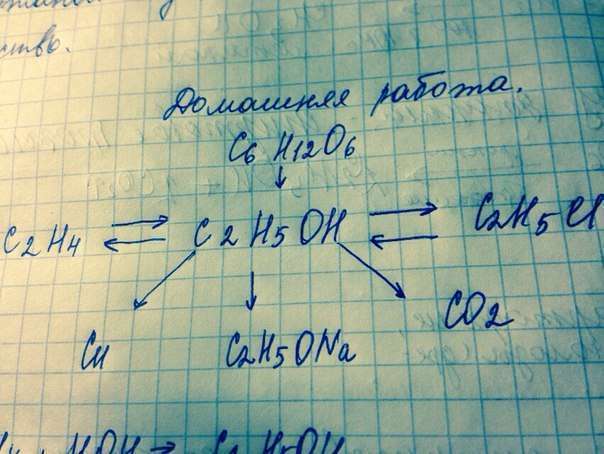 ство.
Домашняя работа.
C6 H12O6
↓
C2H4 ⇄ C2H5OH ⇄ C2H5Cl
↙ ↓ ↘
Cu C2H5ONa CO2
HOH → C2H5OH